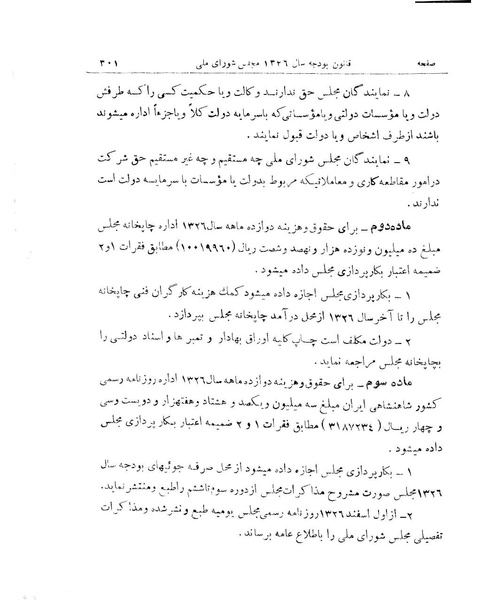 صفحه قانون بودجه سال ۱۳۲۶ مجلس شورای ملی ۳۰۱
۸ ـ نمایندگان مجلس حق ندارند وکالت ویا حکمیت کسی را که طرفش
دولت ویا مؤسسات دولتی ویامؤسساتی که باسرمایه دولت کلاً ویاجزءاً اداره میشوند
باشند ازطرف اشخاص ویا دولت قبول نمایند .
۹ ـ نمایندگان مجلس شورای ملی چه مستقیم و چه غیر مستقیم حق شرکت
درامور مقاطعه کاری و معاملاتیکه مربوط بدولت یا مؤسسات با سرمایه دولت است
ندارند .
ماده دوم ـ برای حقوق وهزینه دوازده ماهه سال ۱۳۲۶ اداره چاپخانه مجلس
مبلغ ده میلیون و نوزده هزار و نهصد وشصت ریال (۱۰۰۱۹۹۶۰) مطابق فقرات ۱و۲
ضمیمه اعتبار بکارپردازی مجلس داده میشود .
۱ ـ بکارپردازی مجلس اجازه داده میشود کمك هزینه کارگران فنی چاپخانه
مجلس را تا آخر سال ۱۳۲۶ ازمحل درآمد چاپخانه مجلس بپردازد .
۲ ـ دولت مکلف است چاپ کلیه اوراق بهادار و تمبر ها و اسناد دولتی را
بچاپخانه مجلس مراجعه نماید .
ماده سوم ـ برای حقوق وهزینه دوازده ماهه سال ۱۳۲۶ اداره روزنامه رسمی
کشور شاهنشاهی ایران مبلغ سه میلیون ویکصد و هشتاد وهفتهزار و دویست وسی
و چهار ریال ( ۳۱۸۷۲۳۴ ) مطابق فقرات ۱ و ۲ ضمیمه اعتبار بکار پردازی مجلس
داده میشود .
۱ ـ بکارپردازی مجلس اجازه داده میشود از محل صرفه جوئیهای بودجه سال
۱۳۲۶مجلس صورت مشروح مذاکرات مجلس ازدوره سوم تاششم راطبع ومنتشر نماید.
۲ـ ازاول اسفند ۱۳۲۶روزنامه رسمی مجلس یومیه طبع ونشرشده ومذاکرات
تفصیلی مجلس شورای ملی را باطلاع عامه برساند .